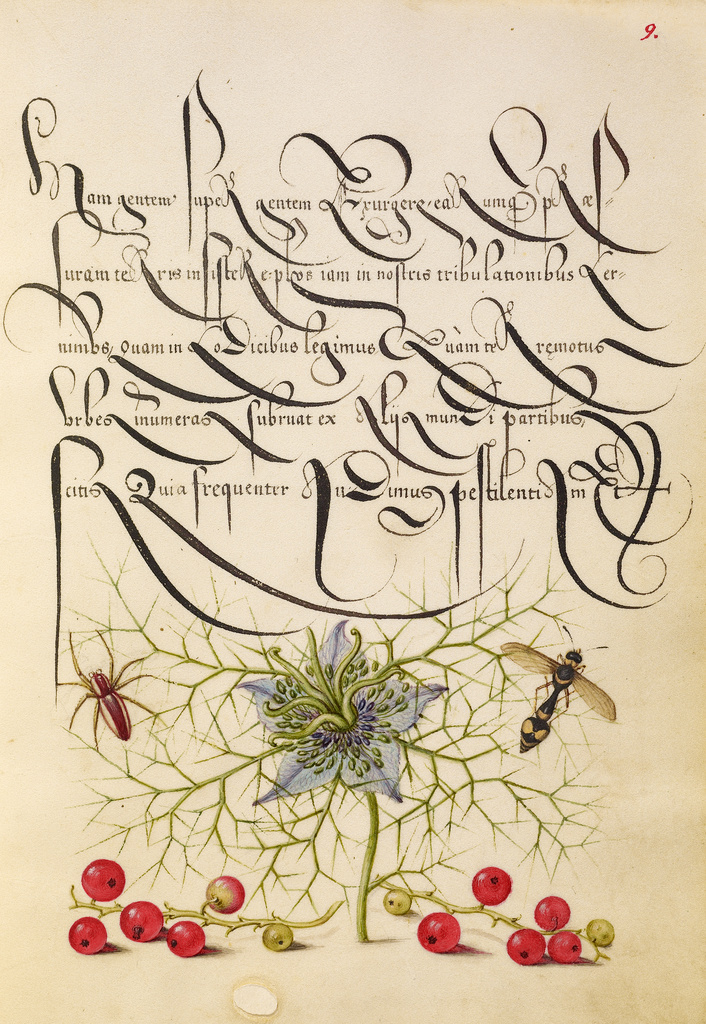 9.
Nam gentem super gentem Exurgere, earumq præ
suram terris insistere, plus iam in nostris tribulationibus Cer=
nimus, Quam in Codicibus legimus Quàm terręmotus
Vrbes innumeras subruat ex alijs mundi partibus,
scitis Quia frequenter audimus, pestilentiam Et